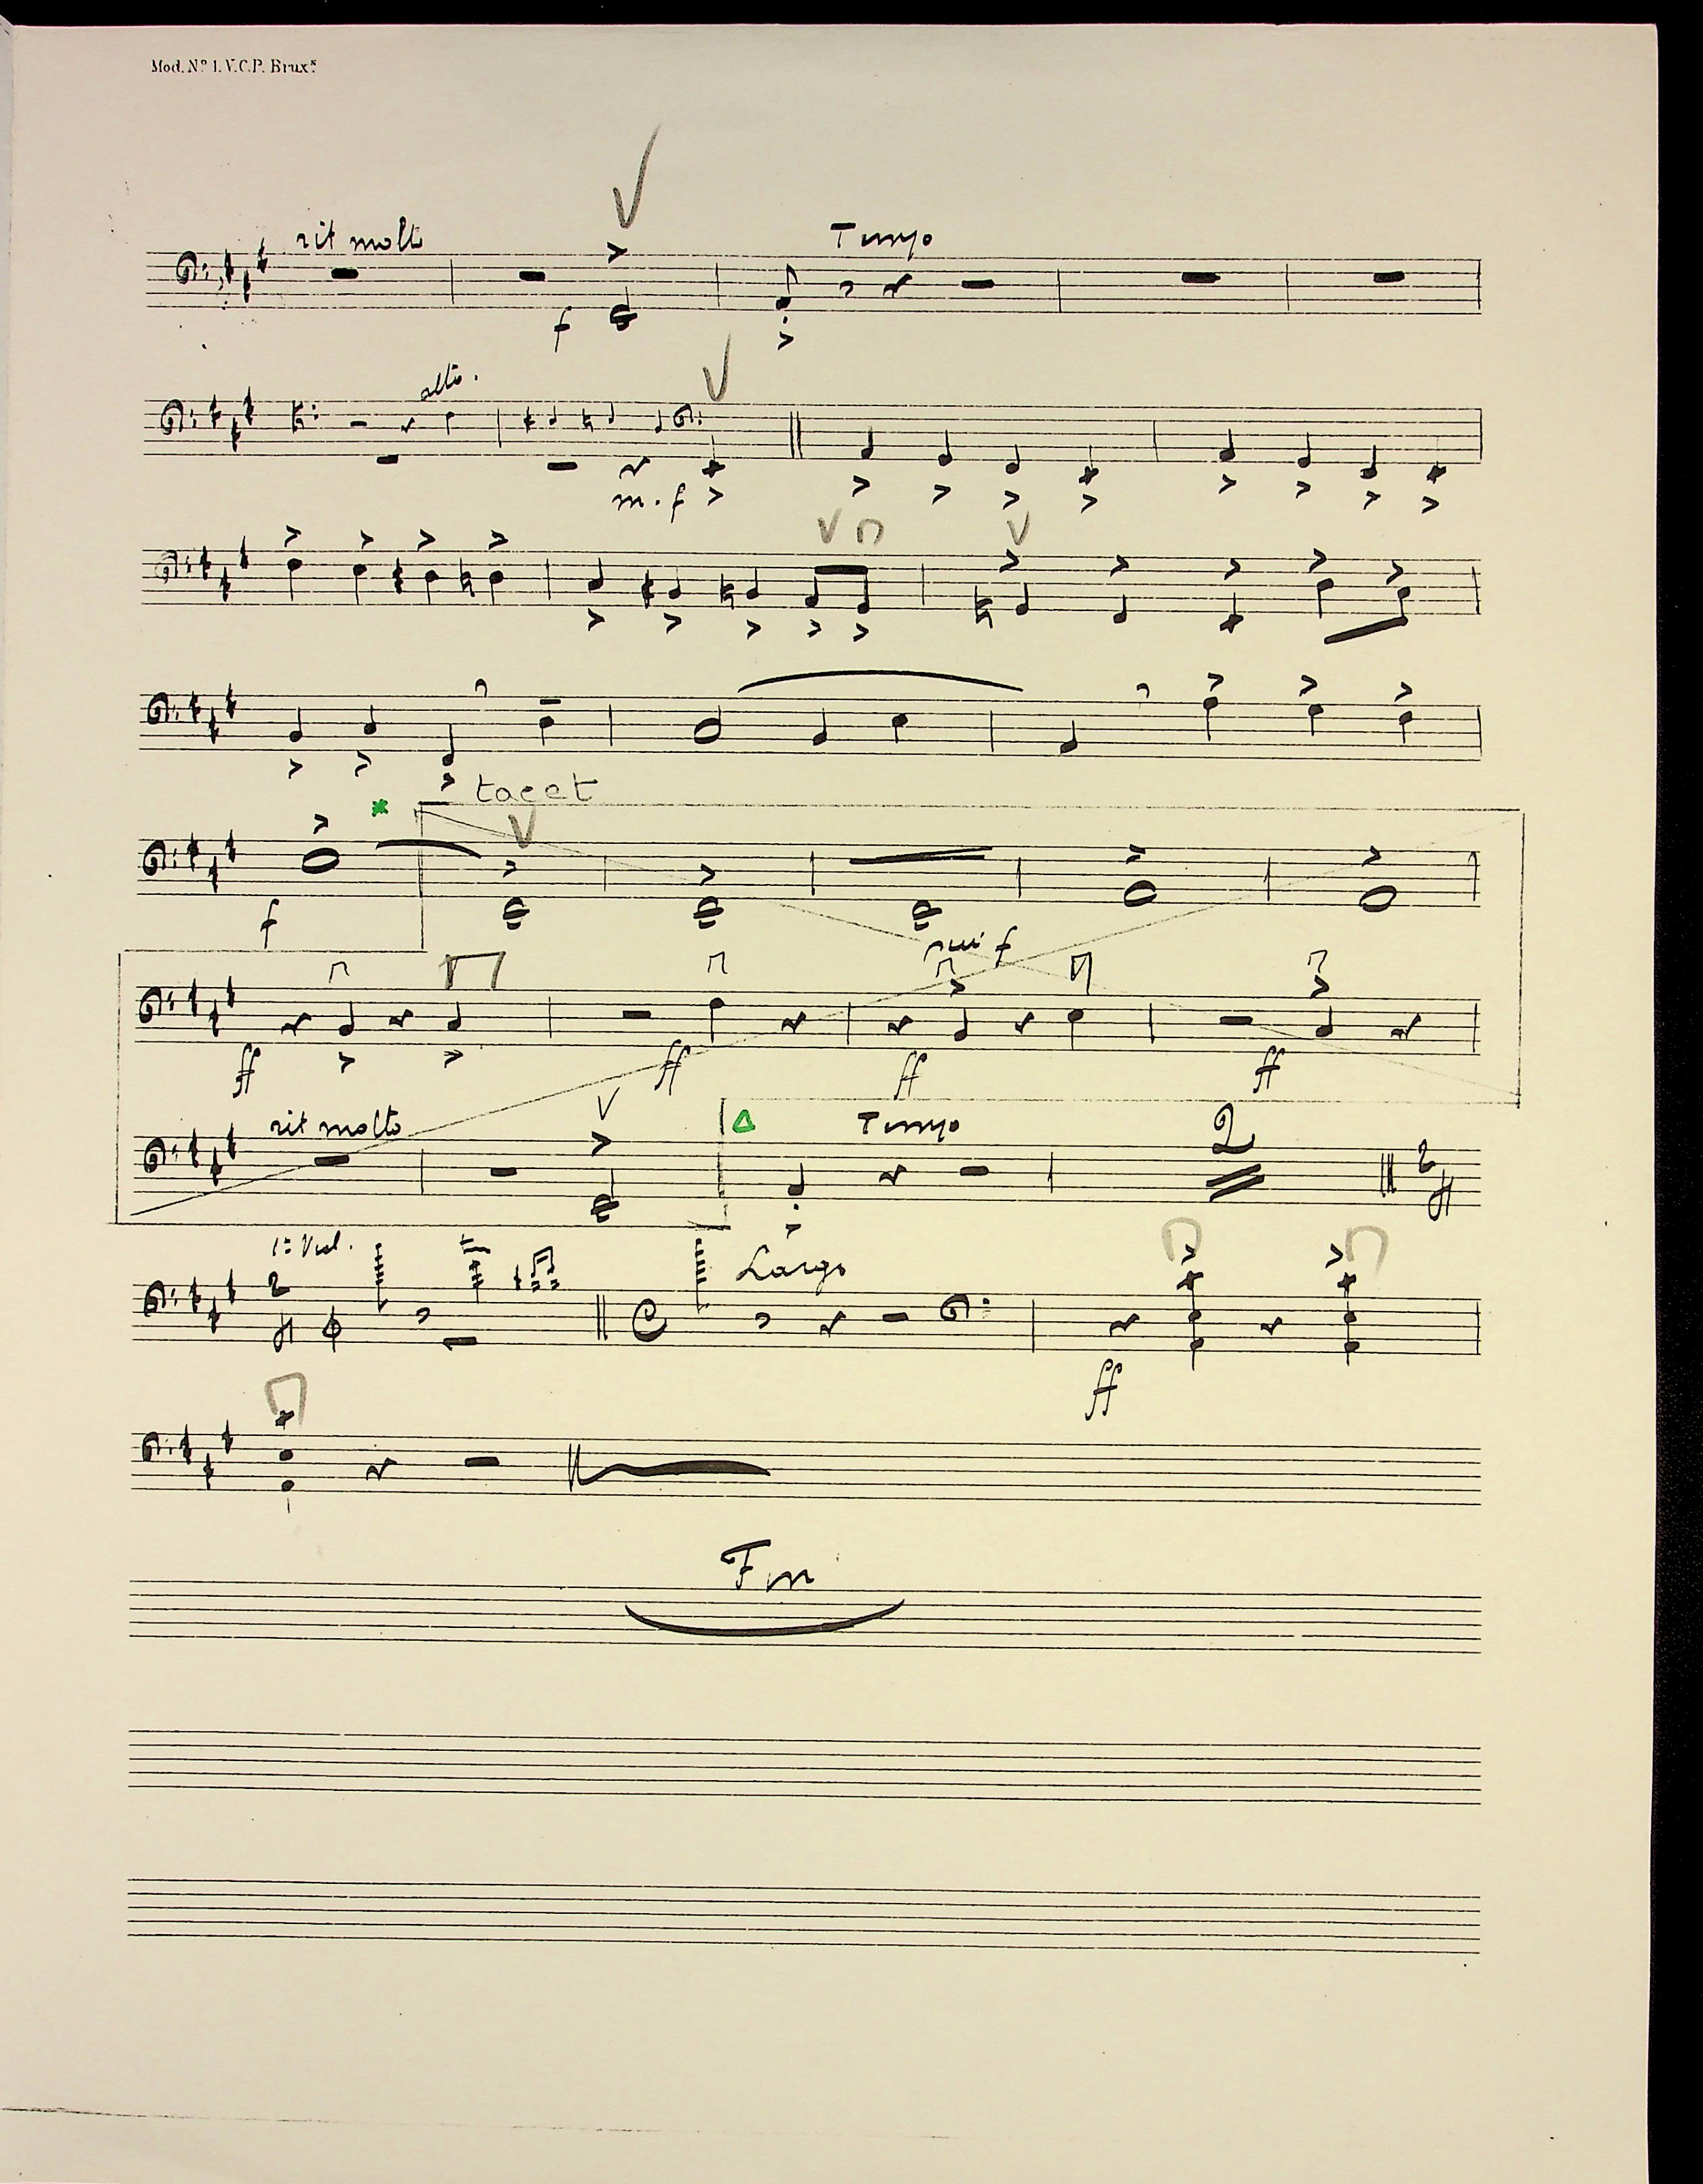 Mod. Nº 1. V.C.P. Bruxˢ
rit molto
Tempo
f
alto.
m.f
tacet
f
più f
ff ff ff ff
rit molto
Tempo
2
2
1º Viol.
2
Largo
ff
Fin